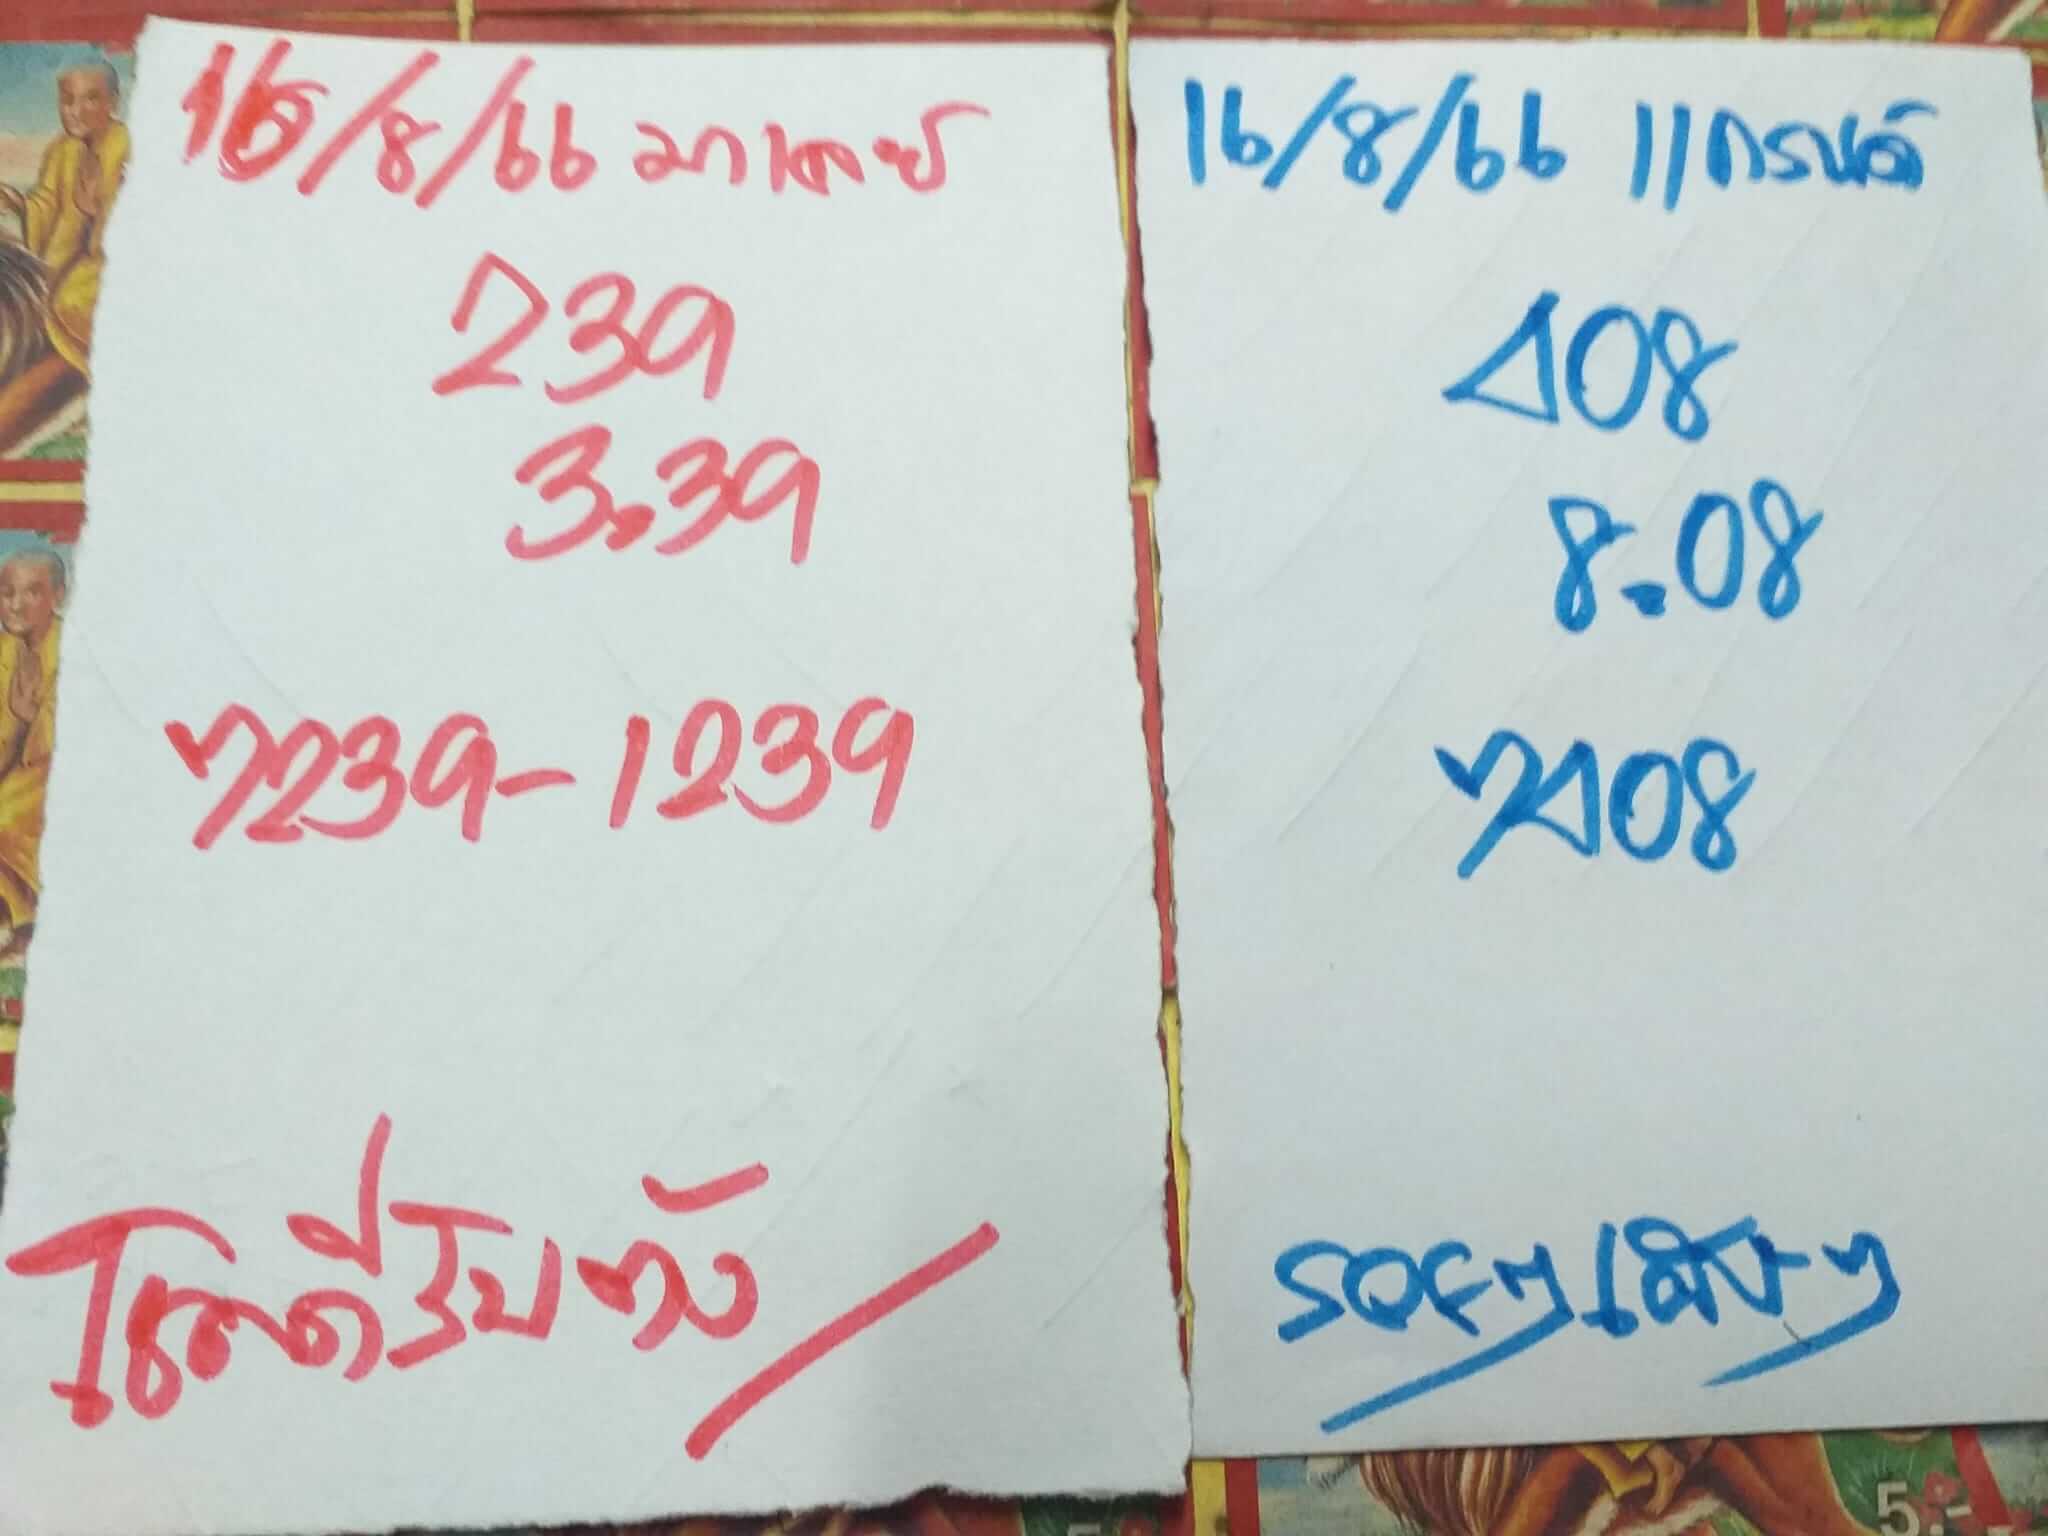 16/8/66 มาเลย์
239
3.39
7239-1239
โชคดีรับทรัพย์
16/8/66 แกรนด์
408
8.08
7408
รวยๆเฮงๆ
5.-